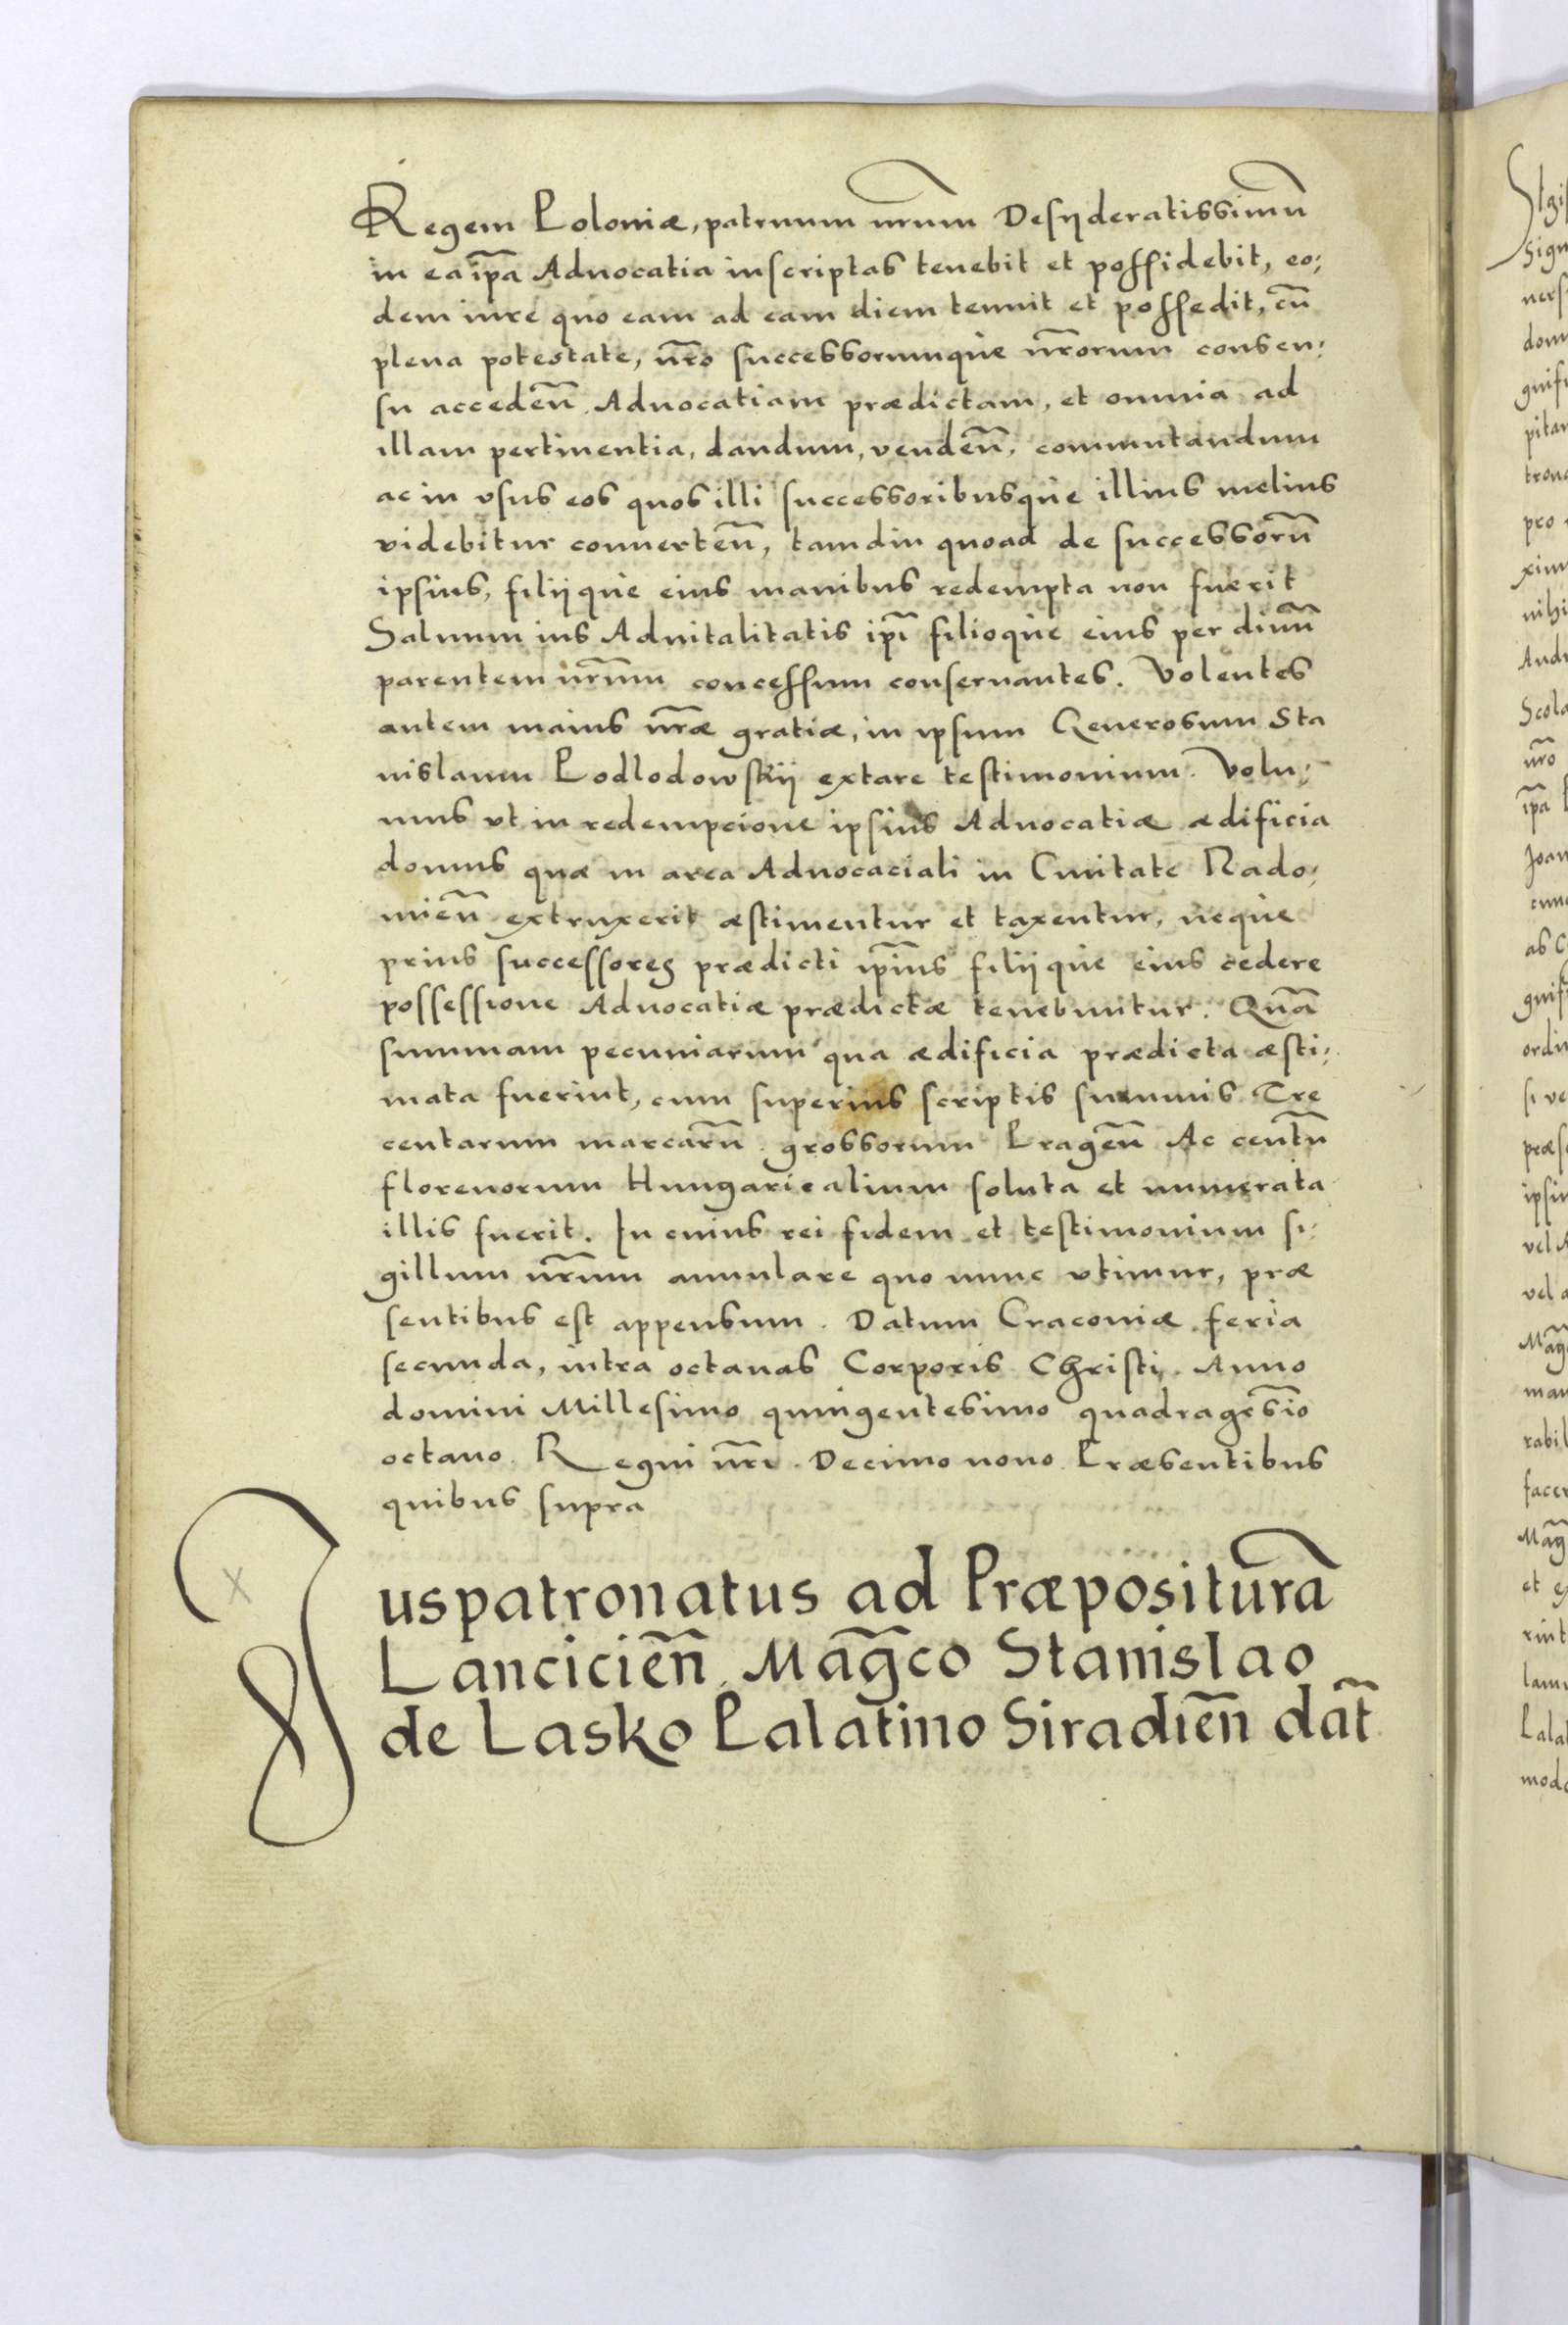 Regem Poloniæ, patruum nr̃um Desyderatissimũ
in ea ip̃a Aduocatia inscriptas tenebit et possidebit, eo;
dem iure quo eam ad eam diem tenuit et possedit, cũ
plena potestate, nr̃o successorumque nr̃orum consen;
su acceden̄. Aduocatiam prædictam, et omnia ad
illam pertinentia, dandum, venden̄, commutandum
ac in vsus eos quos illi successoribusque illius melius
videbitur conuerten̄, tamdiu quoad de successorũ
ipsius, filijque eius manibus redempta non fuerit
Saluum ius Aduitalitatis ip̃i filioque eius per diuũ
parentem nr̃um concessum conseruantes. Volentes
autem maius nr̃æ gratiæ, in ipsum Generosum Sta
nislaum Lodlodowskij extare testimonium. Volu;
mus vt in redempcione ipsius Aduocatiæ ædificia
domus quæ in area Aduocaciali in Ciuitate Rado;
mien̄ extruxerit æstimentur et taxentur, neque
prius successores prædicti ip̃ius filijque eius cedere
possessione Aduocatiæ prædictæ tenebuntur. Quã
summam pecuniarum qua ædificia prædicta æsti;
mata fuerint, cum superius scriptis summis Tre
centarum marcarũ grossorum Pragen̄ Ac centũ
florenorum Hungaricalium soluta et numerata
illis fuerit. In cuius rei fidem et testimonium si;
gillum nr̃um annulare quo nunc vtimur, præ
sentibus est appensum. Datum Cracouiæ feria
secunda, intra octauas Corporis Christi. Anno
domini Millesimo quingentesimo quadragesĩo
octauo. Regni nr̃i. Decimo nono. Præsentibus
quibus supra
Juspatronatus ad Præposituram̃
Lancicien̄. Mag̃co Stanislao
de Lasko Palatino Siradien̄ dat̃